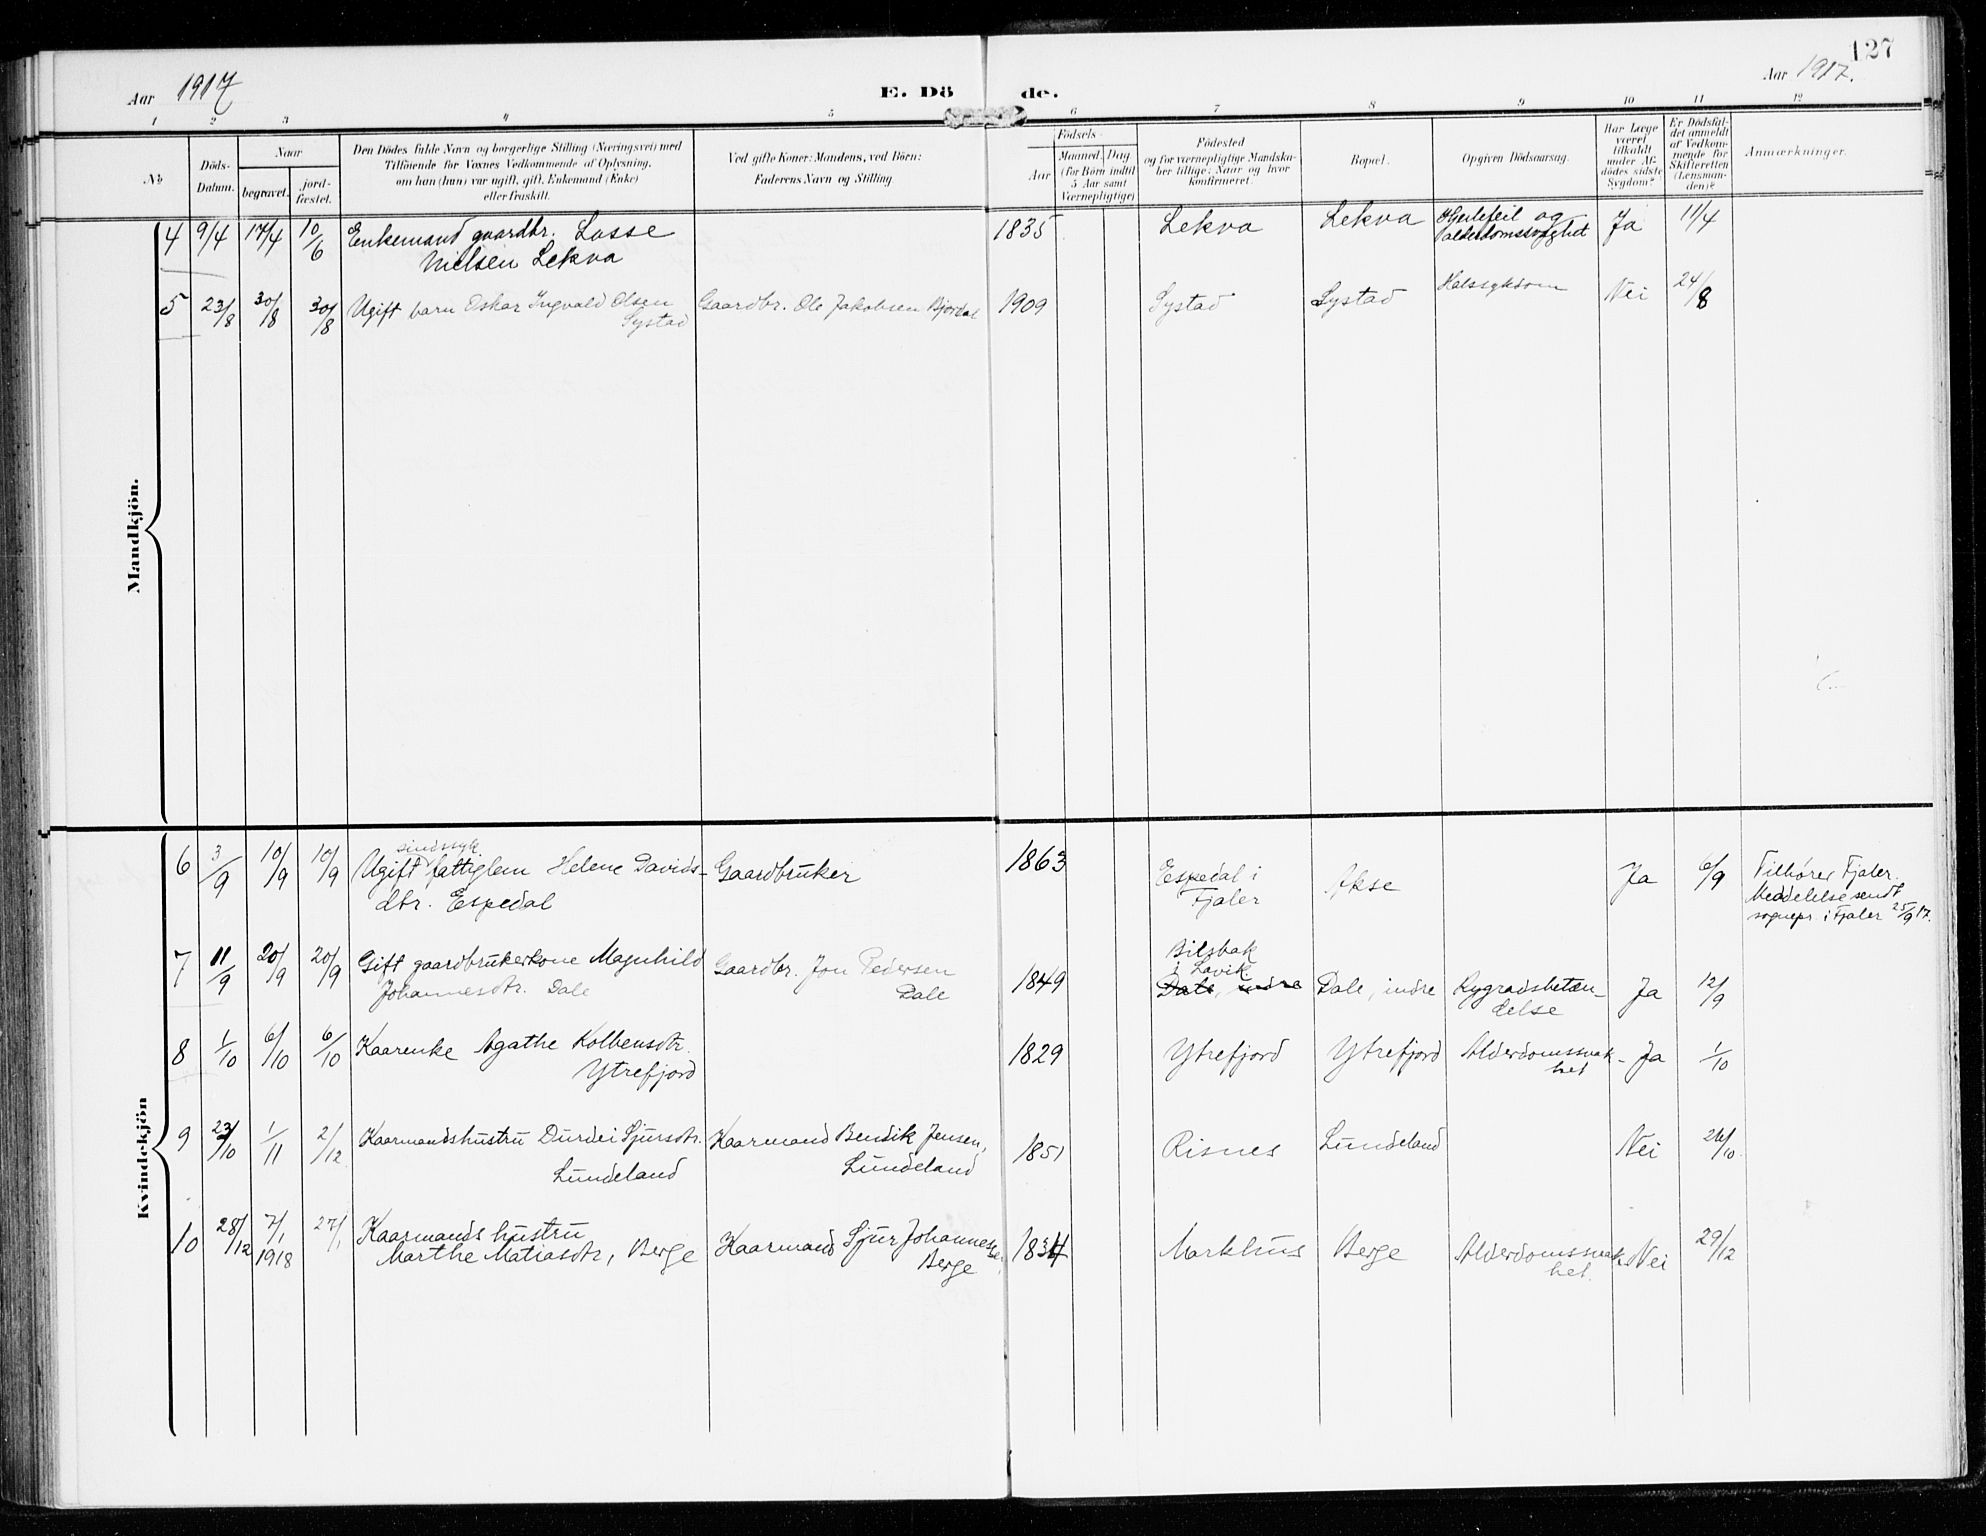 127
Aar 1917
E. Dö de.
Aar 1917.
1 2 3 4 5 6 7 8 9 10 11 12
No
Döds-
Datum.
Naar
begravet.
jord-
fæstet.
Den Dödes fulde Navn og borgerlige Stilling (Næringsvei) med
Tilföiende for Voxnes Vedkommende af Oplysning,
om han (hun) var ugift, gift, Enkemand (Enke)
eller fraskilt.
Ved gifte Koner: Mandens, ved Börn:
Faderens Navn og Stilling
Födsels-
Aar
Maaned. Dag
(for Börn indtil
5 Aar samt
Værnepligtige)
Födested
og for værnepligtige Mandska-
ber tillige: Naar og hvor
konfirmeret.
Bopæl.
Opgiven Dödsaarsag.
Har Læge
været
tilkaldt
under Af-
dödes sidste
Sygdom?
Er Dödsfal-
det anmeldt
af Vedkom-
mende for
Skifteretten
(Lensman-
den)?
Anmærkninger.
Mandkjön.
4 9/4 17/4 10/6 Enkemand gaardbr. Lasse
Nielsen Lekva
1835 Lekva Lekva Hjertefeil og
alderdomssvaghet Ja 11/4
5 23/8 30/8 30/8 Ugift barn Oskar Ingvald Olsen
Systad
Gaardbr. Ole Jakobsen Bjordal 1909 Systad Systad Halssykdom Nei 24/8
Kvindekjön
6 3/9 10/9 10/9 sindssyk
Ugift fattiglem Helene Davids-
dtr. Espedal
Gaardbruker 1863 Espedal i
Fjaler
Akse Ja 6/9 Tilhører Fjaler.
Meddelelse sendt
sognepr. i Fjaler 25/9 17.
7 11/9 20/9 20/9 Gift gaardbrukerkone Magnhild
Johannesdtr. Dale
Gaardbr. Jon Pedersen
Dale
1849 Bilsbak
i Lavik
Dale, indre Dale, indre Rygradsbetæn-
delse Ja 12/9
8 1/10 6/10 6/10 Kaarenke Agathe Kolbensdtr.
Ytrefjord
1829 Ytrefjord Ytrefjord Alderdomssvak-
het Ja 1/10
9 23/10 1/11 2/12 Kaarmandshustru Durdei Sjursdtr.
Lundeland
Kaarmand Bendik Jensen,
Lundeland
1851 Risnes Lundeland Nei 26/10
10 28/12 7/1 1918 27/1 Kaarmands hustru
Marthe Matiasdtr, Berge
Kaarmand Sjur Johannessen,
Berge
1834 Markhus Berge Alderdomssvak-
het. Nei 29/12